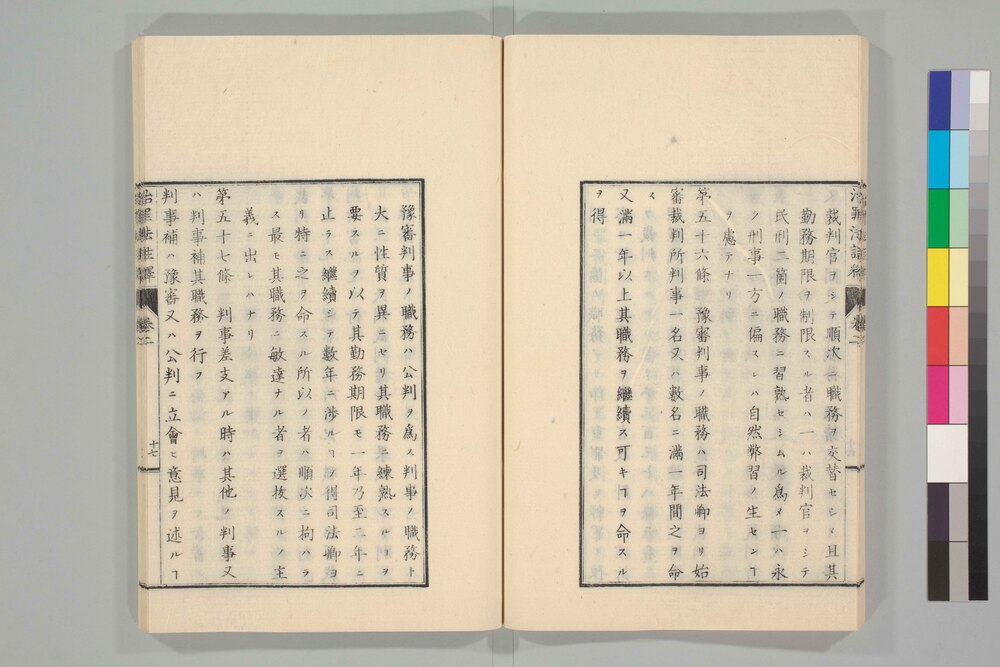 裁判官ヲシテ順次ニ職務ヲ交替セシメ且其
勤務期限ヲ制限スル者ハ一ハ裁判官ヲシテ
民刑二箇ノ職務ニ習熟セシムル爲メ一ハ永
ク刑事一方ニ偏スレハ自然弊習ノ生センヿ
ヲ慮テナリ
第五十六條 豫審判事ノ職務ハ司法卿ヨリ始
審裁判所判事一名又ハ數名ニ滿一年間之ヲ命
ス
又滿一年以上其職務ヲ繼續ス可キヿヲ命スル
ヲ得
豫審判事ノ職務ハ公判ヲ爲ス判事ノ職務ト
大ニ性質ヲ異ニセリ其職務ニ練熟スルヿヲ
要スルヲ以テ其勤務期限モ一年乃至二年ニ
止ラス繼續シテ數年ニ涉ルヿヲ得司法卿ヨ
リ特ニ之ヲ命スル所以ノ者ハ順次ニ拘ハラ
ス最モ其職務ニ敏達ナル者ヲ選拔スルノ主
義ニ出レハナリ
第五十七條 判事差支アル時ハ其他ノ判事又
ハ判事補其職務ヲ行フ
判事補ハ豫審又ハ公判ニ立會ヒ意見ヲ述ルヿ
治罪法註釋 卷二 十七